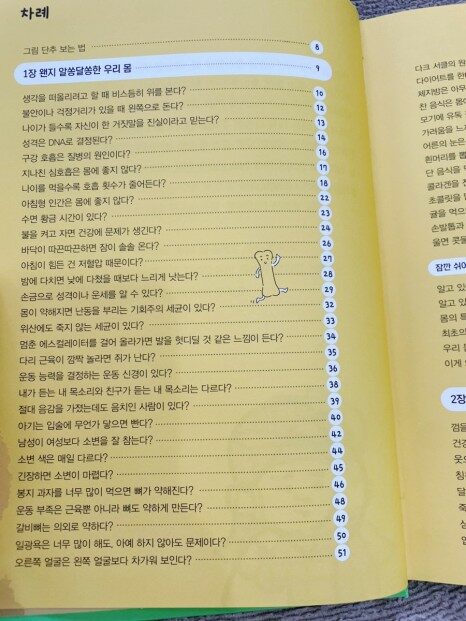 차례
그림 단추 보는 법 8
1장 왠지 알쏭달쏭한 우리 몸 9
생각을 떠올리려고 할 때 비스듬히 위를 본다? 10
불안이나 걱정거리가 있을 때 왼쪽으로 돈다? 12
나이가 들수록 자신이 한 거짓말을 진실이라고 믿는다? 13
성격은 DNA로 결정된다? 14
구강 호흡은 질병의 원인이다? 16
지나친 심호흡은 몸에 좋지 않다? 17
나이를 먹을수록 호흡 횟수가 줄어든다? 18
아침형 인간은 몸에 좋지 않다? 22
수면 황금 시간이 있다? 23
불을 켜고 자면 건강에 문제가 생긴다? 24
바닥이 따끈따끈하면 잠이 솔솔 온다? 26
아침이 힘든 건 저혈압 때문이다? 27
밤에 다치면 낮에 다쳤을 때보다 느리게 낫는다? 28
손금으로 성격이나 운세를 알 수 있다? 29
몸이 약해지면 난동을 부리는 기회주의 세균이 있다? 32
위산에도 죽지 않는 세균이 있다? 33
멈춘 에스컬레이터를 걸어 올라가면 발을 헛디딜 것 같은 느낌이 든다? 34
다리 근육이 깜짝 놀라면 쥐가 난다? 35
운동 능력을 결정하는 운동 신경이 있다? 36
내가 듣는 내 목소리와 친구가 듣는 내 목소리는 다르다? 38
절대 음감을 가졌는데도 음치인 사람이 있다? 39
아기는 입술에 무언가 닿으면 빤다? 40
남성이 여성보다 소변을 잘 참는다? 42
소변 색은 매일 다르다? 44
긴장하면 소변이 마렵다? 45
봉지 과자를 너무 많이 먹으면 뼈가 약해진다? 46
운동 부족은 근육뿐 아니라 뼈도 약하게 만든다? 48
갈비뼈는 의외로 약하다? 49
일광욕은 너무 많이 해도, 아예 하지 않아도 문제이다? 50
오른쪽 얼굴은 왼쪽 얼굴보다 차가워 보인다? 51
다크 서클의 원
다이어트를 한
체지방은 아무
찬 음식은 몸
모기에 유독
가려움을 느
어른의 눈은
흰머리를 뽑
단 음식을
콜라겐을
초콜릿을
귤을 먹으
손발톱과
울면 콧물
잠깐 쉬어
알고 있
알고
몸의 특
최초의
우리
이게
2장
껌을
건강
옷
침
달
죽